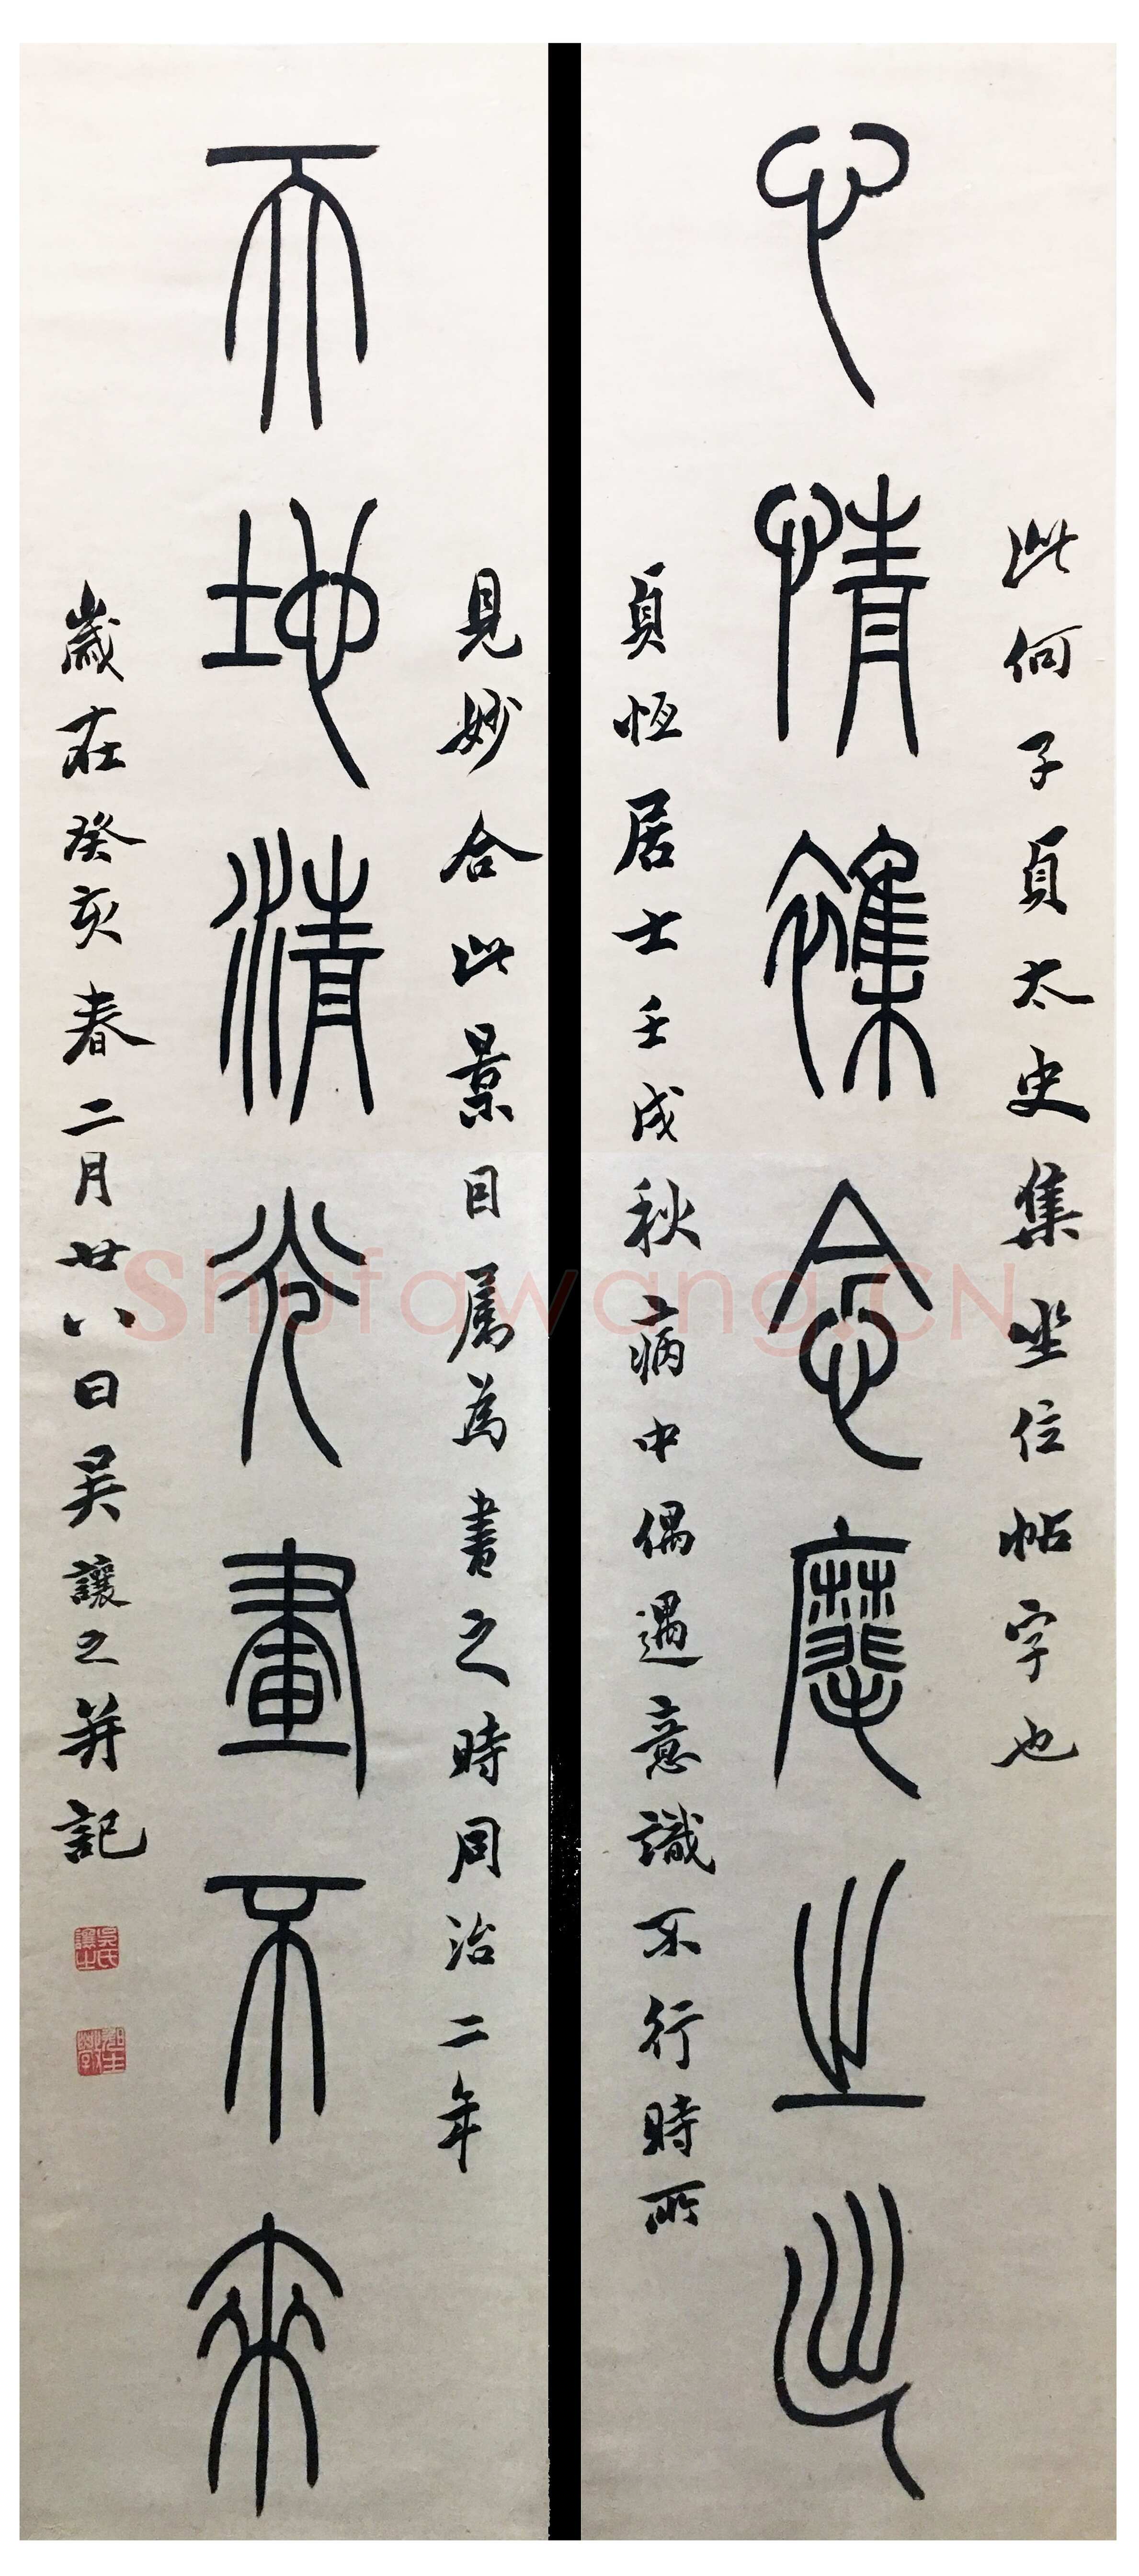 此何子貞太史集坐位帖字也
心情雜念麾之出
貞恆居士壬戌秋病中偶遇意識不行時所
見妙合此景囙属為書之時同治二年
天地清光畫不來
歲在癸亥春二月廿八日吳讓之并記
Shufawang.CN